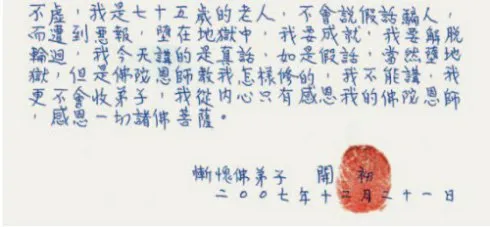 不虛，我是七十五歲的老人，不會説假話騙人，
而遭到惡報，墮在地獄中，我要成就，我要解脫
輪迴，我今天講的是真話，如是假話，當然墮地
獄，但是佛陀恩師教我怎樣修的，我不能講，我
更不會收弟子，我從內心只有感恩我的佛陀恩師
，感恩一切諸佛菩薩。
慚愧佛弟子 開初
二〇〇七年十二月二十一日